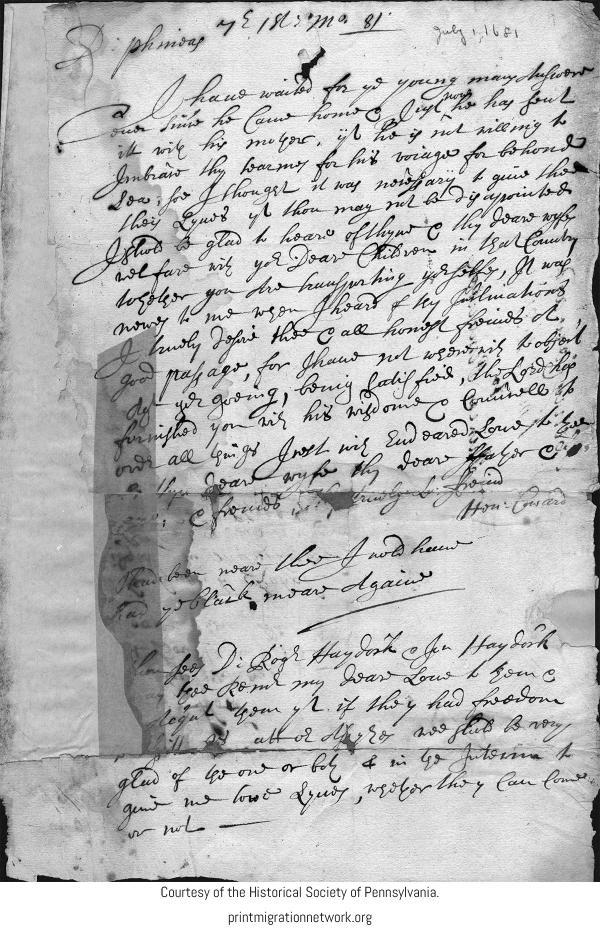 ye 1st: Mo. 81
July 1, 1681
D: phineas
I haue waited for ye young mans Answere
euer since he Came home & Just now he has sent
itt with his mother, yt he is not willing to
Imbrace thy tearmes for his voiage for behond
Sea, soe I thought it was necessary to giue thee
theis Lynes yt thou may not be disapointed
I shold be glad to heare of thyne & thy deare wifes
welfare with yor Deare Children in that Country
whether you Are transporting yorselfes, It was
newes to me when I heard of thy Intimations
I truely desire thee & all honest freinds A
good passage, for I haue not wherewith to object
yor goeing, being satisfied, the Lord has
furnished you with his wisdome & Counsell to
order all things I rest with Endeared Loue to thee
deare wyfe thy deare ffather &
& freinds, freind
Hen: Coward
been neare thee I wold haue
had ye black meare Againe
sees D: Rogr Haydock & Jon Haydock
thee Remr my deare Loue to them &
them yt if they had freedom
att or wee shold be very
glad of the one or both & in the Interim to
giue me towe Lynes, whether they Can Come
or not
Courtesy of the Historical Society of Pennsylvania.
printmigrationnetwork.org